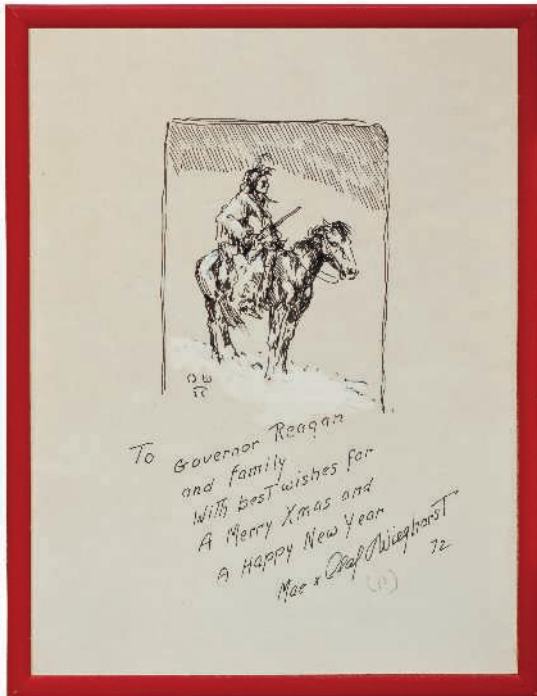 To Governor Reagan
and family
With best wishes for
A Merry Xmas and
A Happy New Year
Mae & Olaf Wieghorst
72